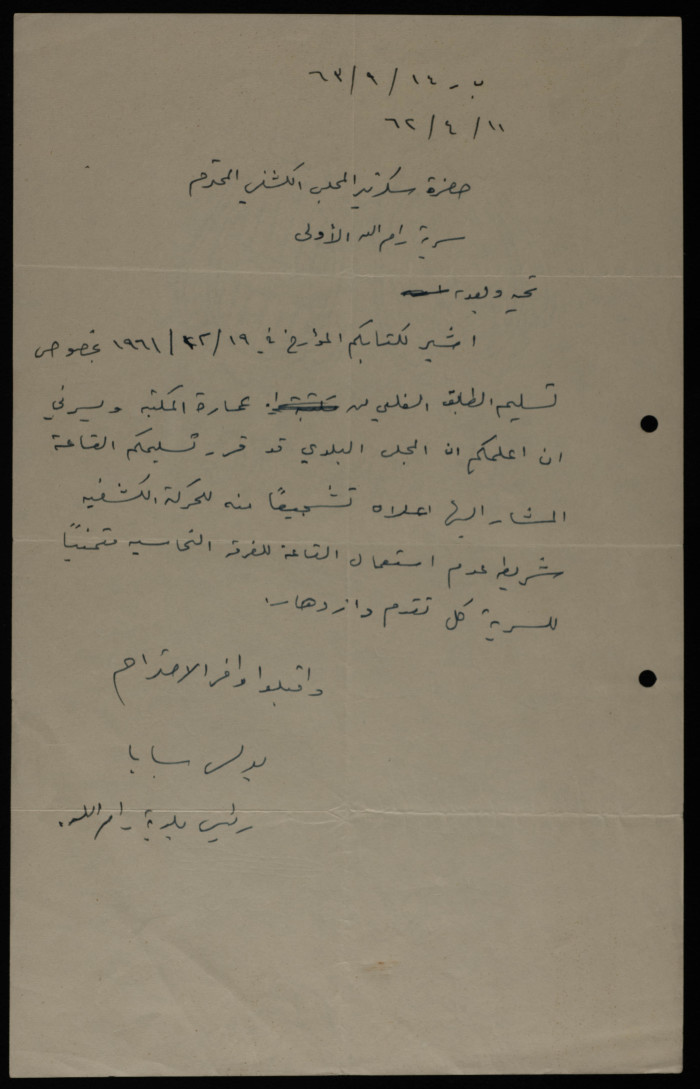 ب ر ١٤ / ٩ / ٦٣
١١ / ٤ / ٦٢
حضرة سكرتير المجلس الكشفي المحترم
سرية رام الله الأولى
تحية وبعد،
اشير لكتابكم المؤرخ في ١٩ / ١٢ / ١٩٦١ بخصوص
تسليم الطابق السفلي من عمارة المكتبه ويسرني
ان اعلمكم ان المجلس البلدي قد قرر تسليمكم القاعة
المشار اليها اعلاه تشجيعًا منه للحركة الكشفيه
شريطه عدم استعمال القاعة للفرقه النحاسيه متمنيًا
للسرية كل تقدم وازدهار.
واقبلوا وافر الاحترام
بولس سابا
رئيس بلدية رام الله.